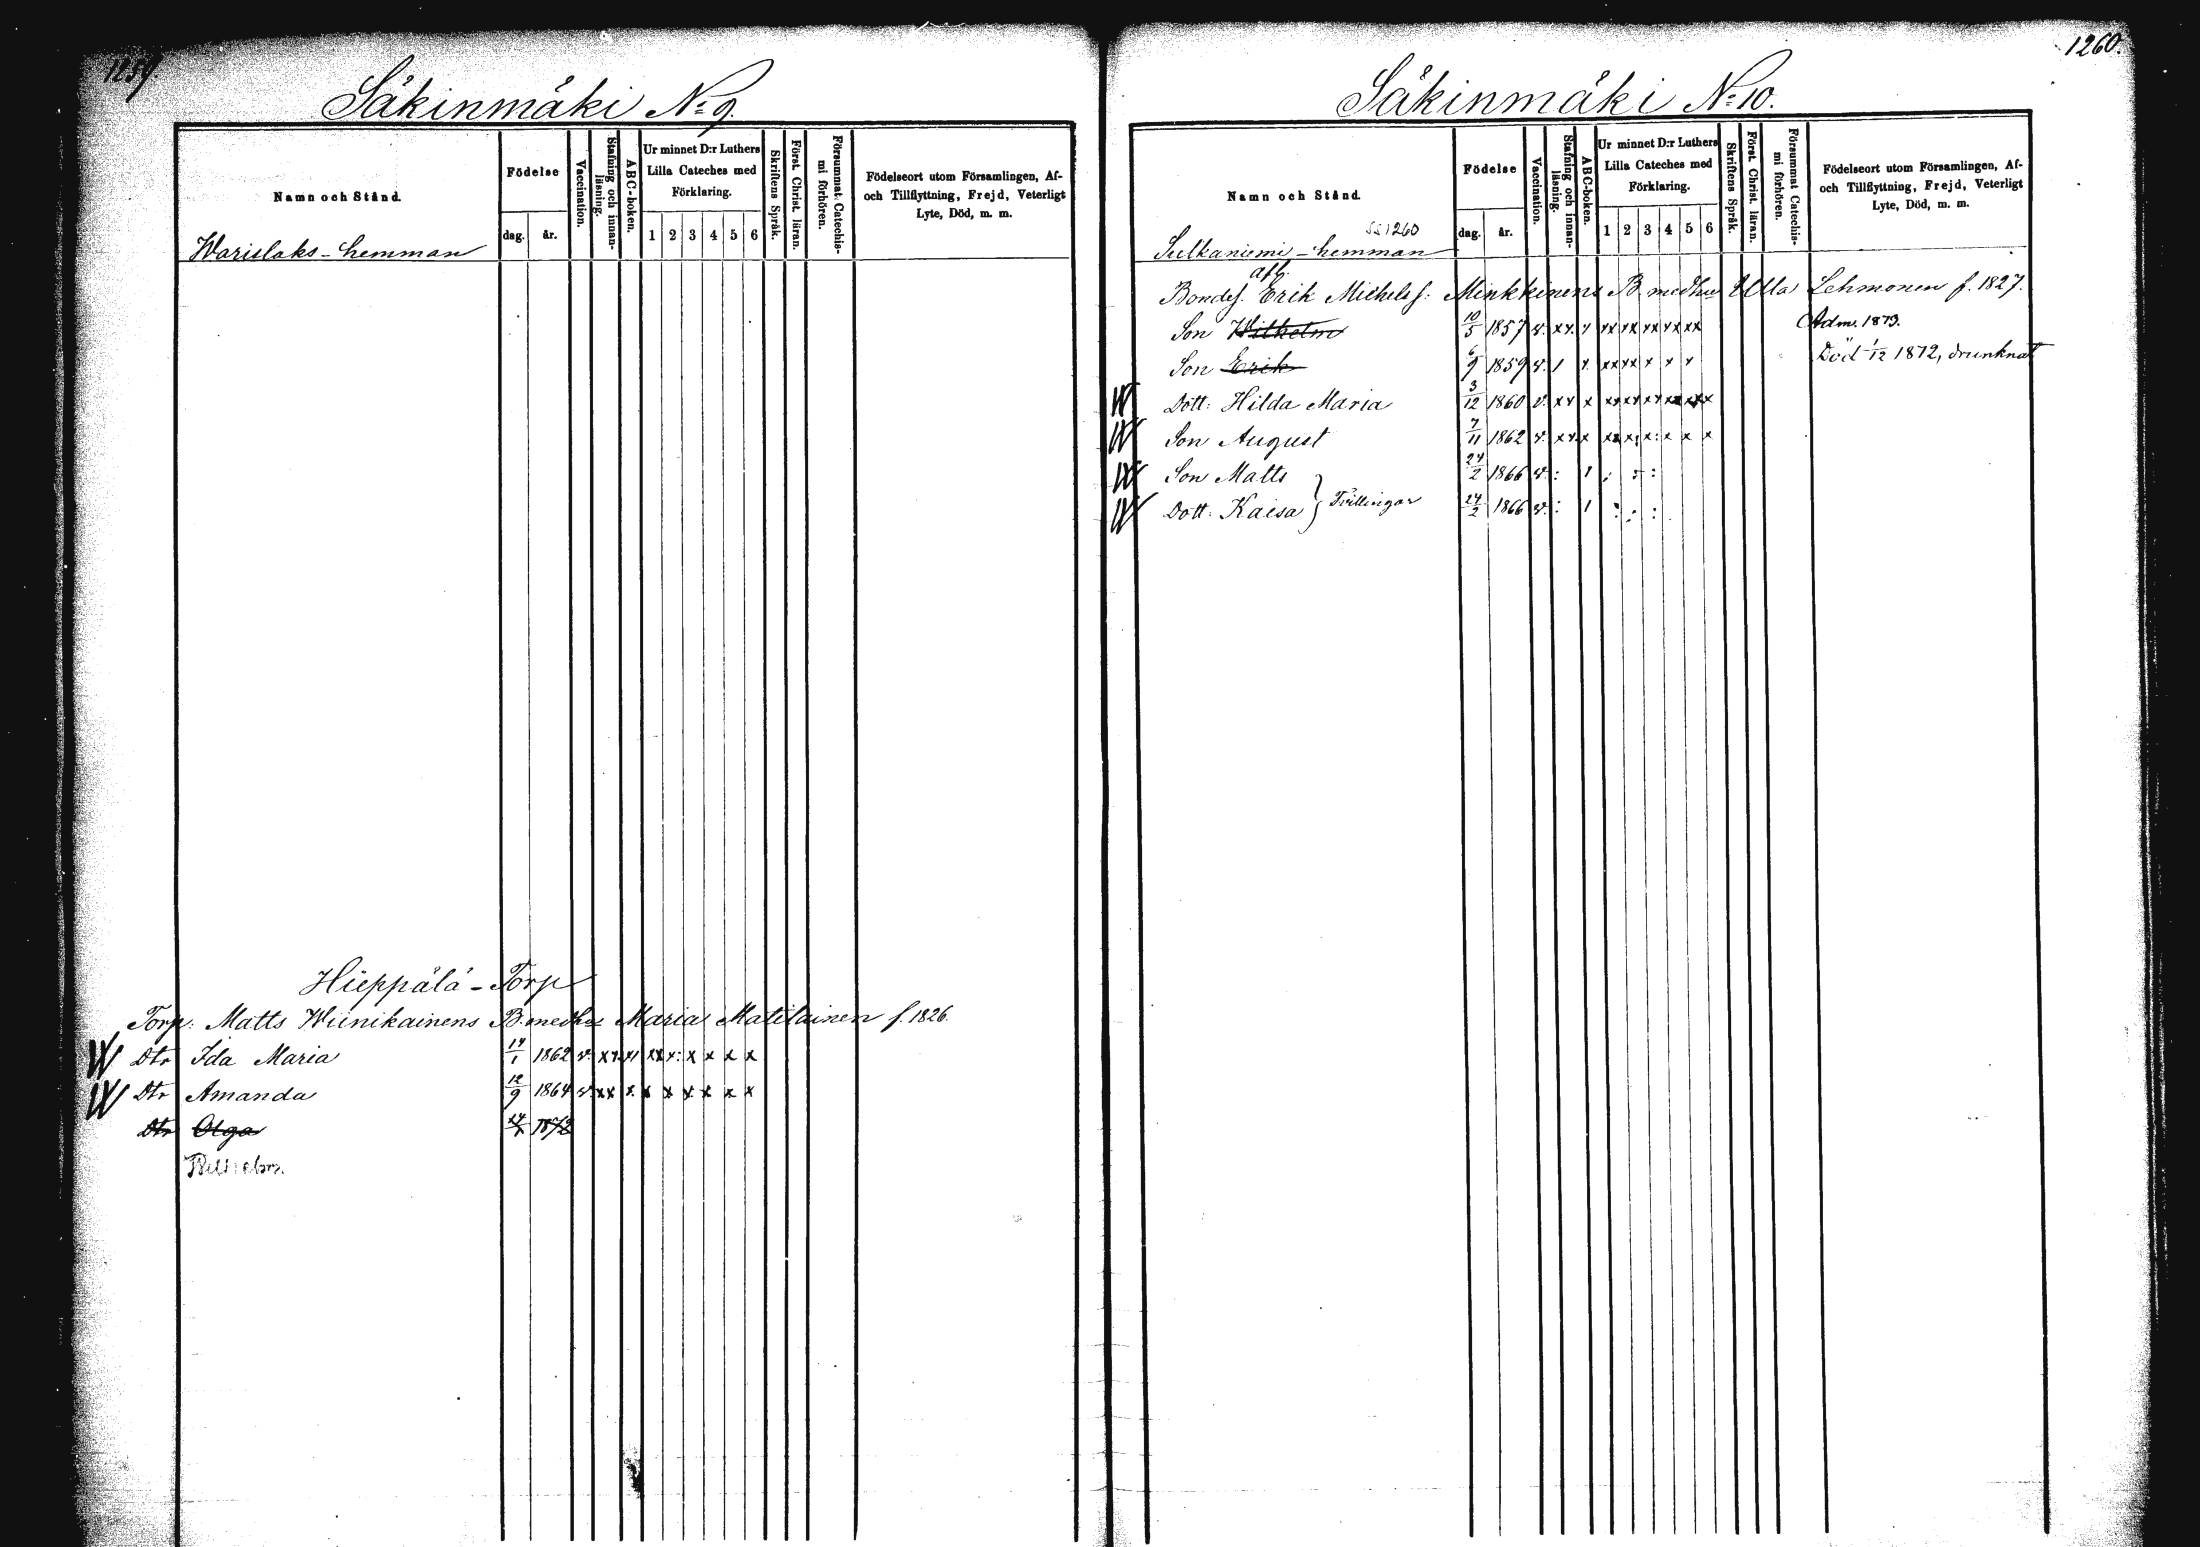 1259.
Säkinmäki No 9.
Namn och Stånd.
Födelse
dag.
år.
Vaccination.
Stafning och innan-
läsning.
ABC-boken.
Ur minnet D:r Luthers
Lilla Cateches med
Förklaring.
1 2 3 4 5 6
Skriftens Språk.
Först. Christ. läran.
Försummat Catechis-
mi förhören.
Födelseort utom Församlingen, Af-
och Tillflyttning, Frejd, Veterligt
Lyte, Död, m. m.
Warislaks-hemman
Hieppälä-Torp
Torp: Matts Wiinikainens B. med hu Maria Matilainen f. 1826.
W Dtr Ida Maria 14/1 1862 v. xx x x x x x
W Dtr Amanda 12/9 1864 v. xx x x x x x x
Dtr Olga 1872
1260.
Säkinmäki No 10.
Namn och Stånd.
Födelse
dag.
år.
Vaccination.
Stafning och innan-
läsning.
ABC-boken.
Ur minnet D:r Luthers
Lilla Cateches med
Förklaring.
1 2 3 4 5 6
Skriftens Språk.
Först. Christ. läran.
Försummat Catechis-
mi förhören.
Födelseort utom Församlingen, Af-
och Tillflyttning, Frejd, Veterligt
Lyte, Död, m. m.
1260
Sulkaniemi-hemman
afl.
Bondes. Erik Michelss: Minkkinens B med hu Ulla Lehmonen f. 1827.
Son Wilhelm 10/5 1857 v. xx. x xx xx xx xx xx Adm. 1873.
Son Erik 6/9 1859 v. 1 x xx xx x x x Död 1/12 1872, drunknat
W Dott: Hilda Maria 3/12 1860 v. xx x xx xx xx xx xx x
W Son August 7/11 1862 v. xx x xx x: x: x x x
W Son Matts 24/2 1866 v. : 1
W Dott: Kaisa } Tvillingar 24/2 1866 v. : 1